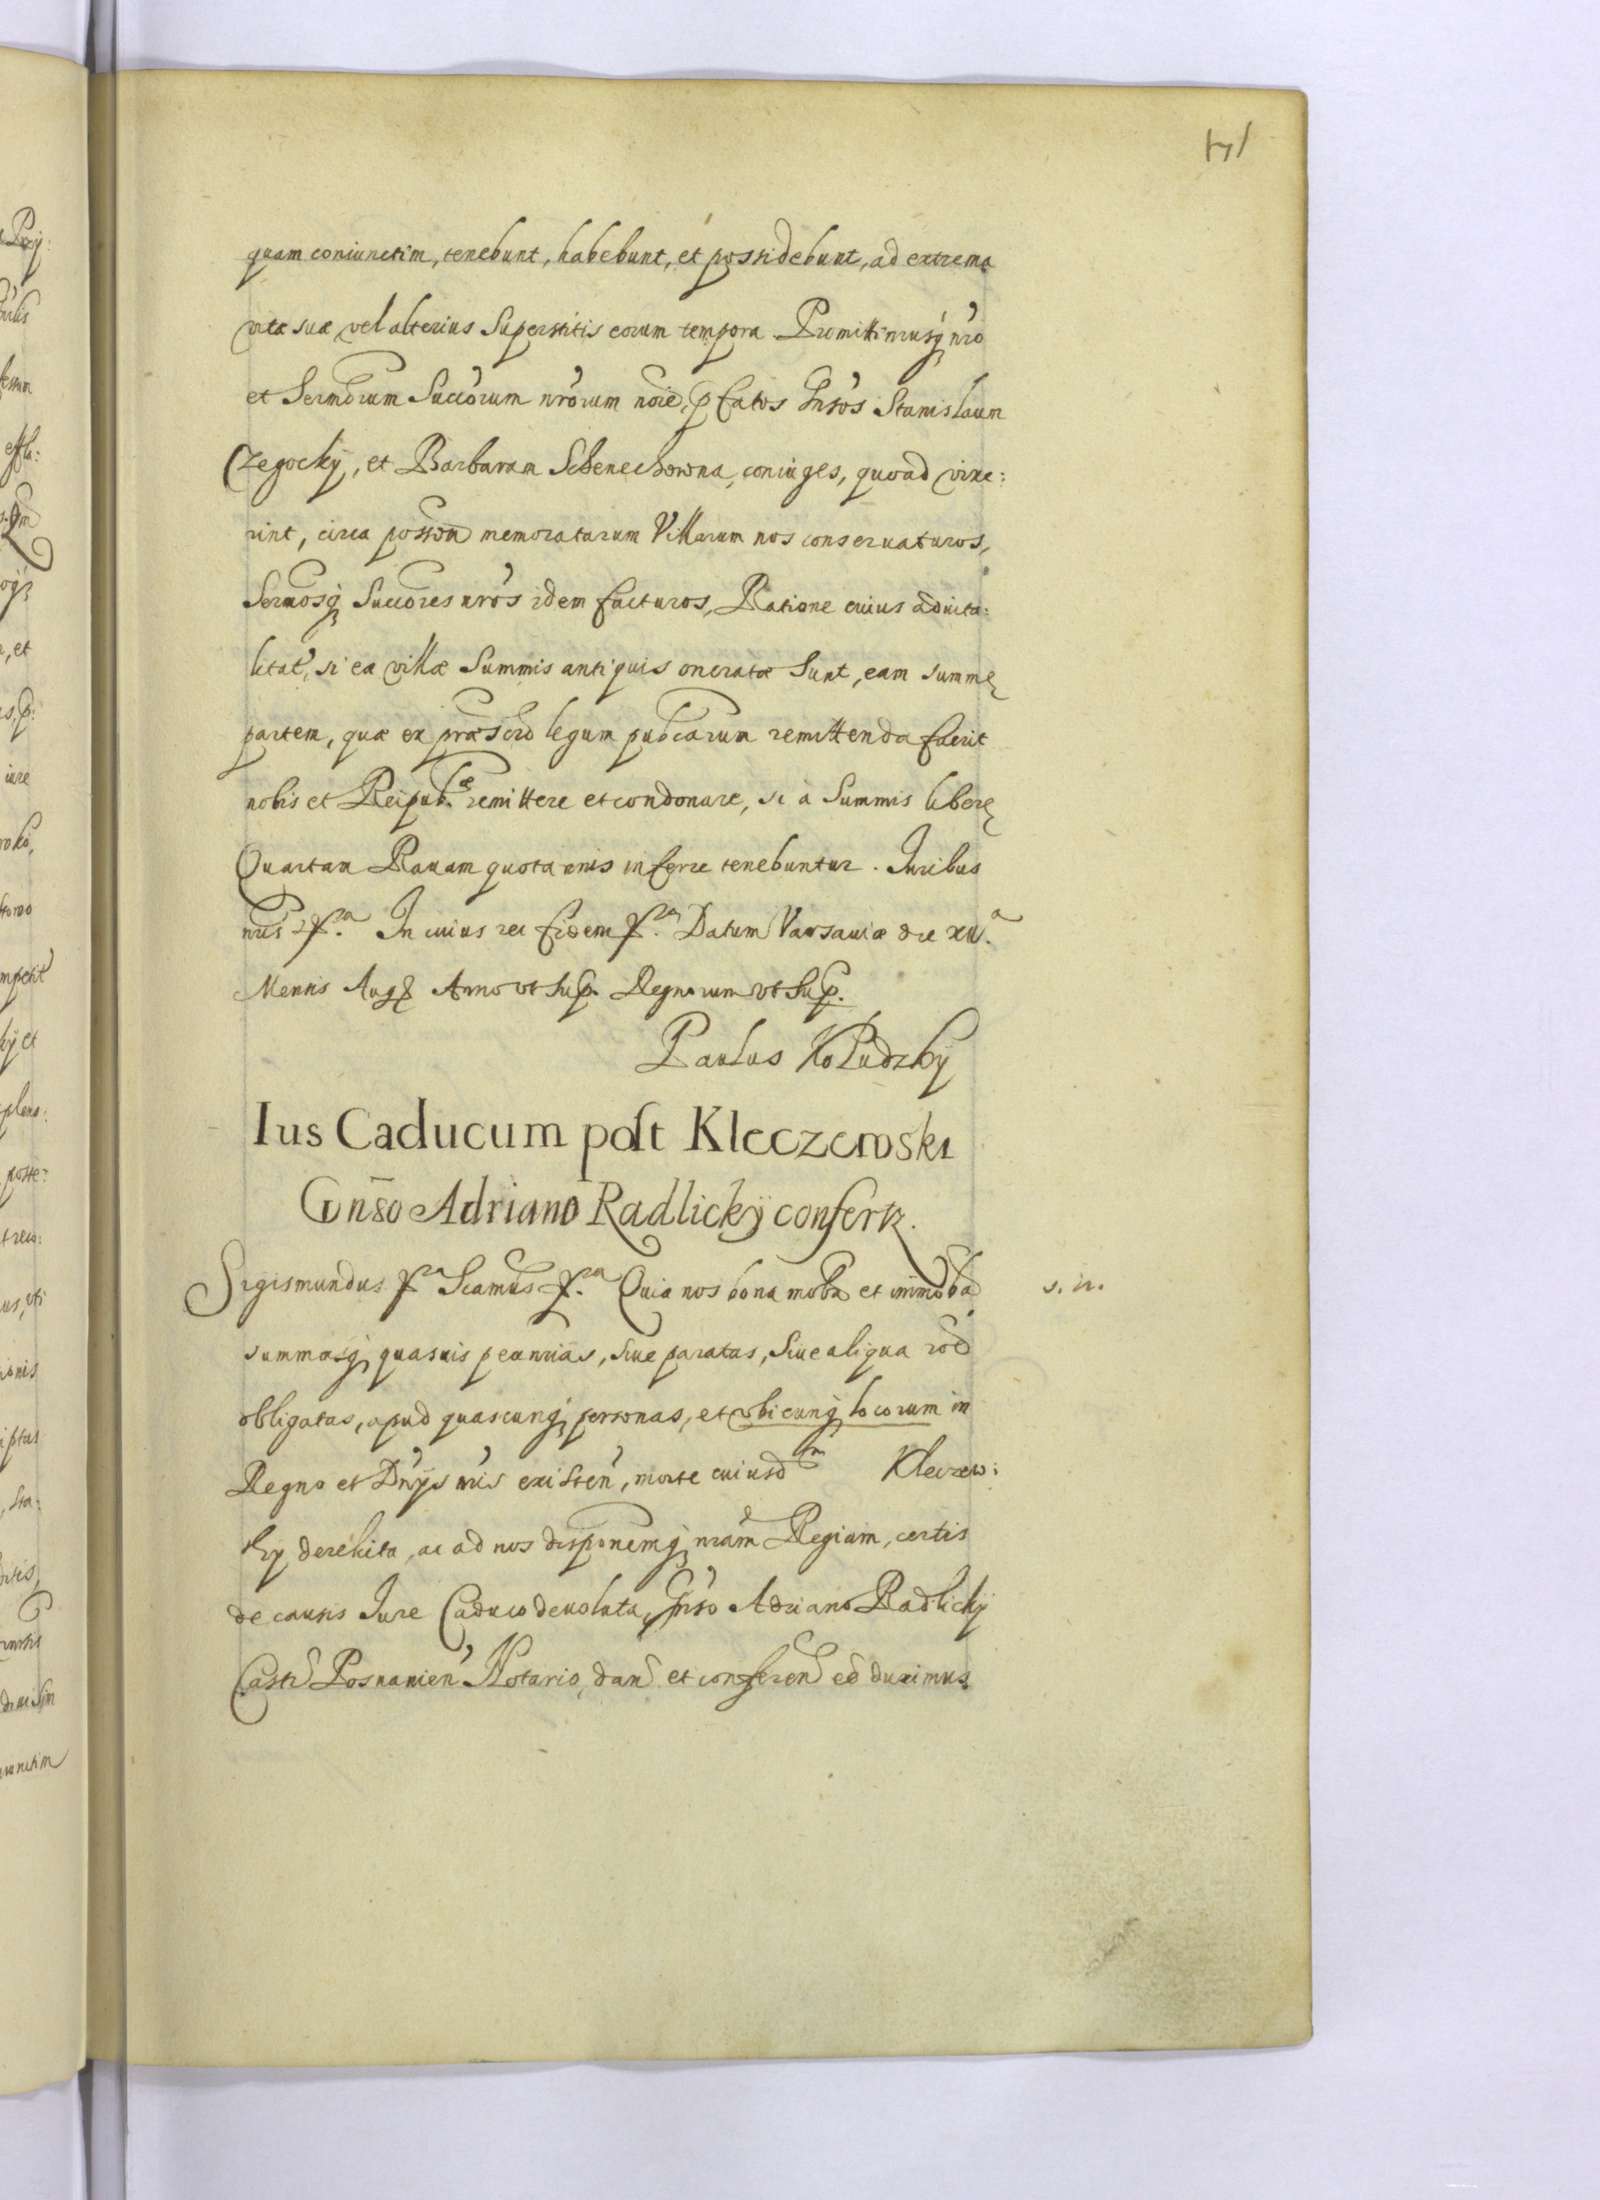 quam coniunctim, tenebunt, habebunt, et possidebunt, ad extrema
vitæ suæ vel alterius Superstitis eorum tempora Promittimusq nr̃o
et Sermorum Succorum nr̃orum noie, pfatos Gnsos Stanislaum
Zegocky, et Barbaram Schenechowna, coniuges, quoad vixe:
rint, circa possom memoratarum Villarum nos conseruaturos,
Sermosq Succores nr̃os idem facturos, Ratione cuius aduita:
litat, si ea villæ Summis antiquis oneratæ Sunt, eam summę
partem, quæ ex præscro legum pubcarum remittenda fuerit
nobis et Reipub.cæ remittere et condonare, si à Summis liberę
Quartam Rauam quotannis inferre tenebuntur. Iuribus
nris In cuius rei fidem Datum Varsauiæ die XII.a
Mensis Augi Anno vt Sup. Regnorum vt Sup.
Paulus Koludzky
Ius Caducum post Kleczewski
Gnso Adriano Radlicky confertr.
Sigismundus Scamus Quia nos bona moba et immoba
s. n.
summasq quasuis pecunias, siue paratas, siue aliqua rod
obligatas, apud quascunq personas, et vbicunq locorum in
Regno et Dnys nris existen, morte cuiusdm Kleczew:
sky derelicta, ac ad nos disponemq nram Regiam, certis
de causis Iure Caduco deuoluta, Gnso Adriano Radlicky
Castr Posnanien Notario, dan et conferen ee duximus.